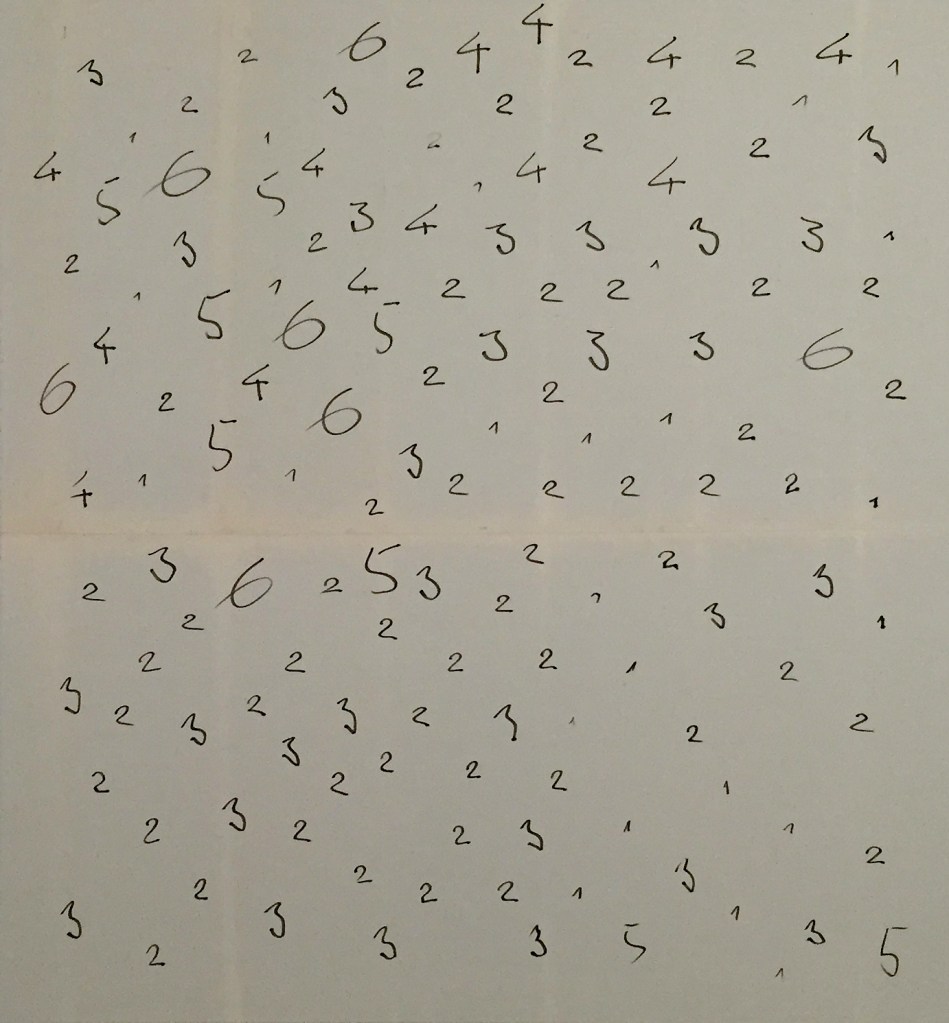 3 2 6 2 4 4 2 4 2 4 1
2 3 2 2 1
4 1 6 1 4 2 4 2 4 2 3
5 5 1
2 3 2 3 4 3 3 3 3 1
1 5 1 4 2 2 2 1 2 2
4 6 5 3 3 3 6
6 2 4 6 2 2 2
5 3 1 1 1 2
4 1 1 2 2 2 2 2 2 1
2 3 6 2 5 3 2 2 3
2 2 2 1 3 1
2 2 2 2 1 2
3 2 3 2 3 2 3 2 2
2 3 2 2 2 2 1
2 3 2 2 3 1 1 2
2 2 2 2 1 3
3 2 3 3 3 5 1 3 5
1